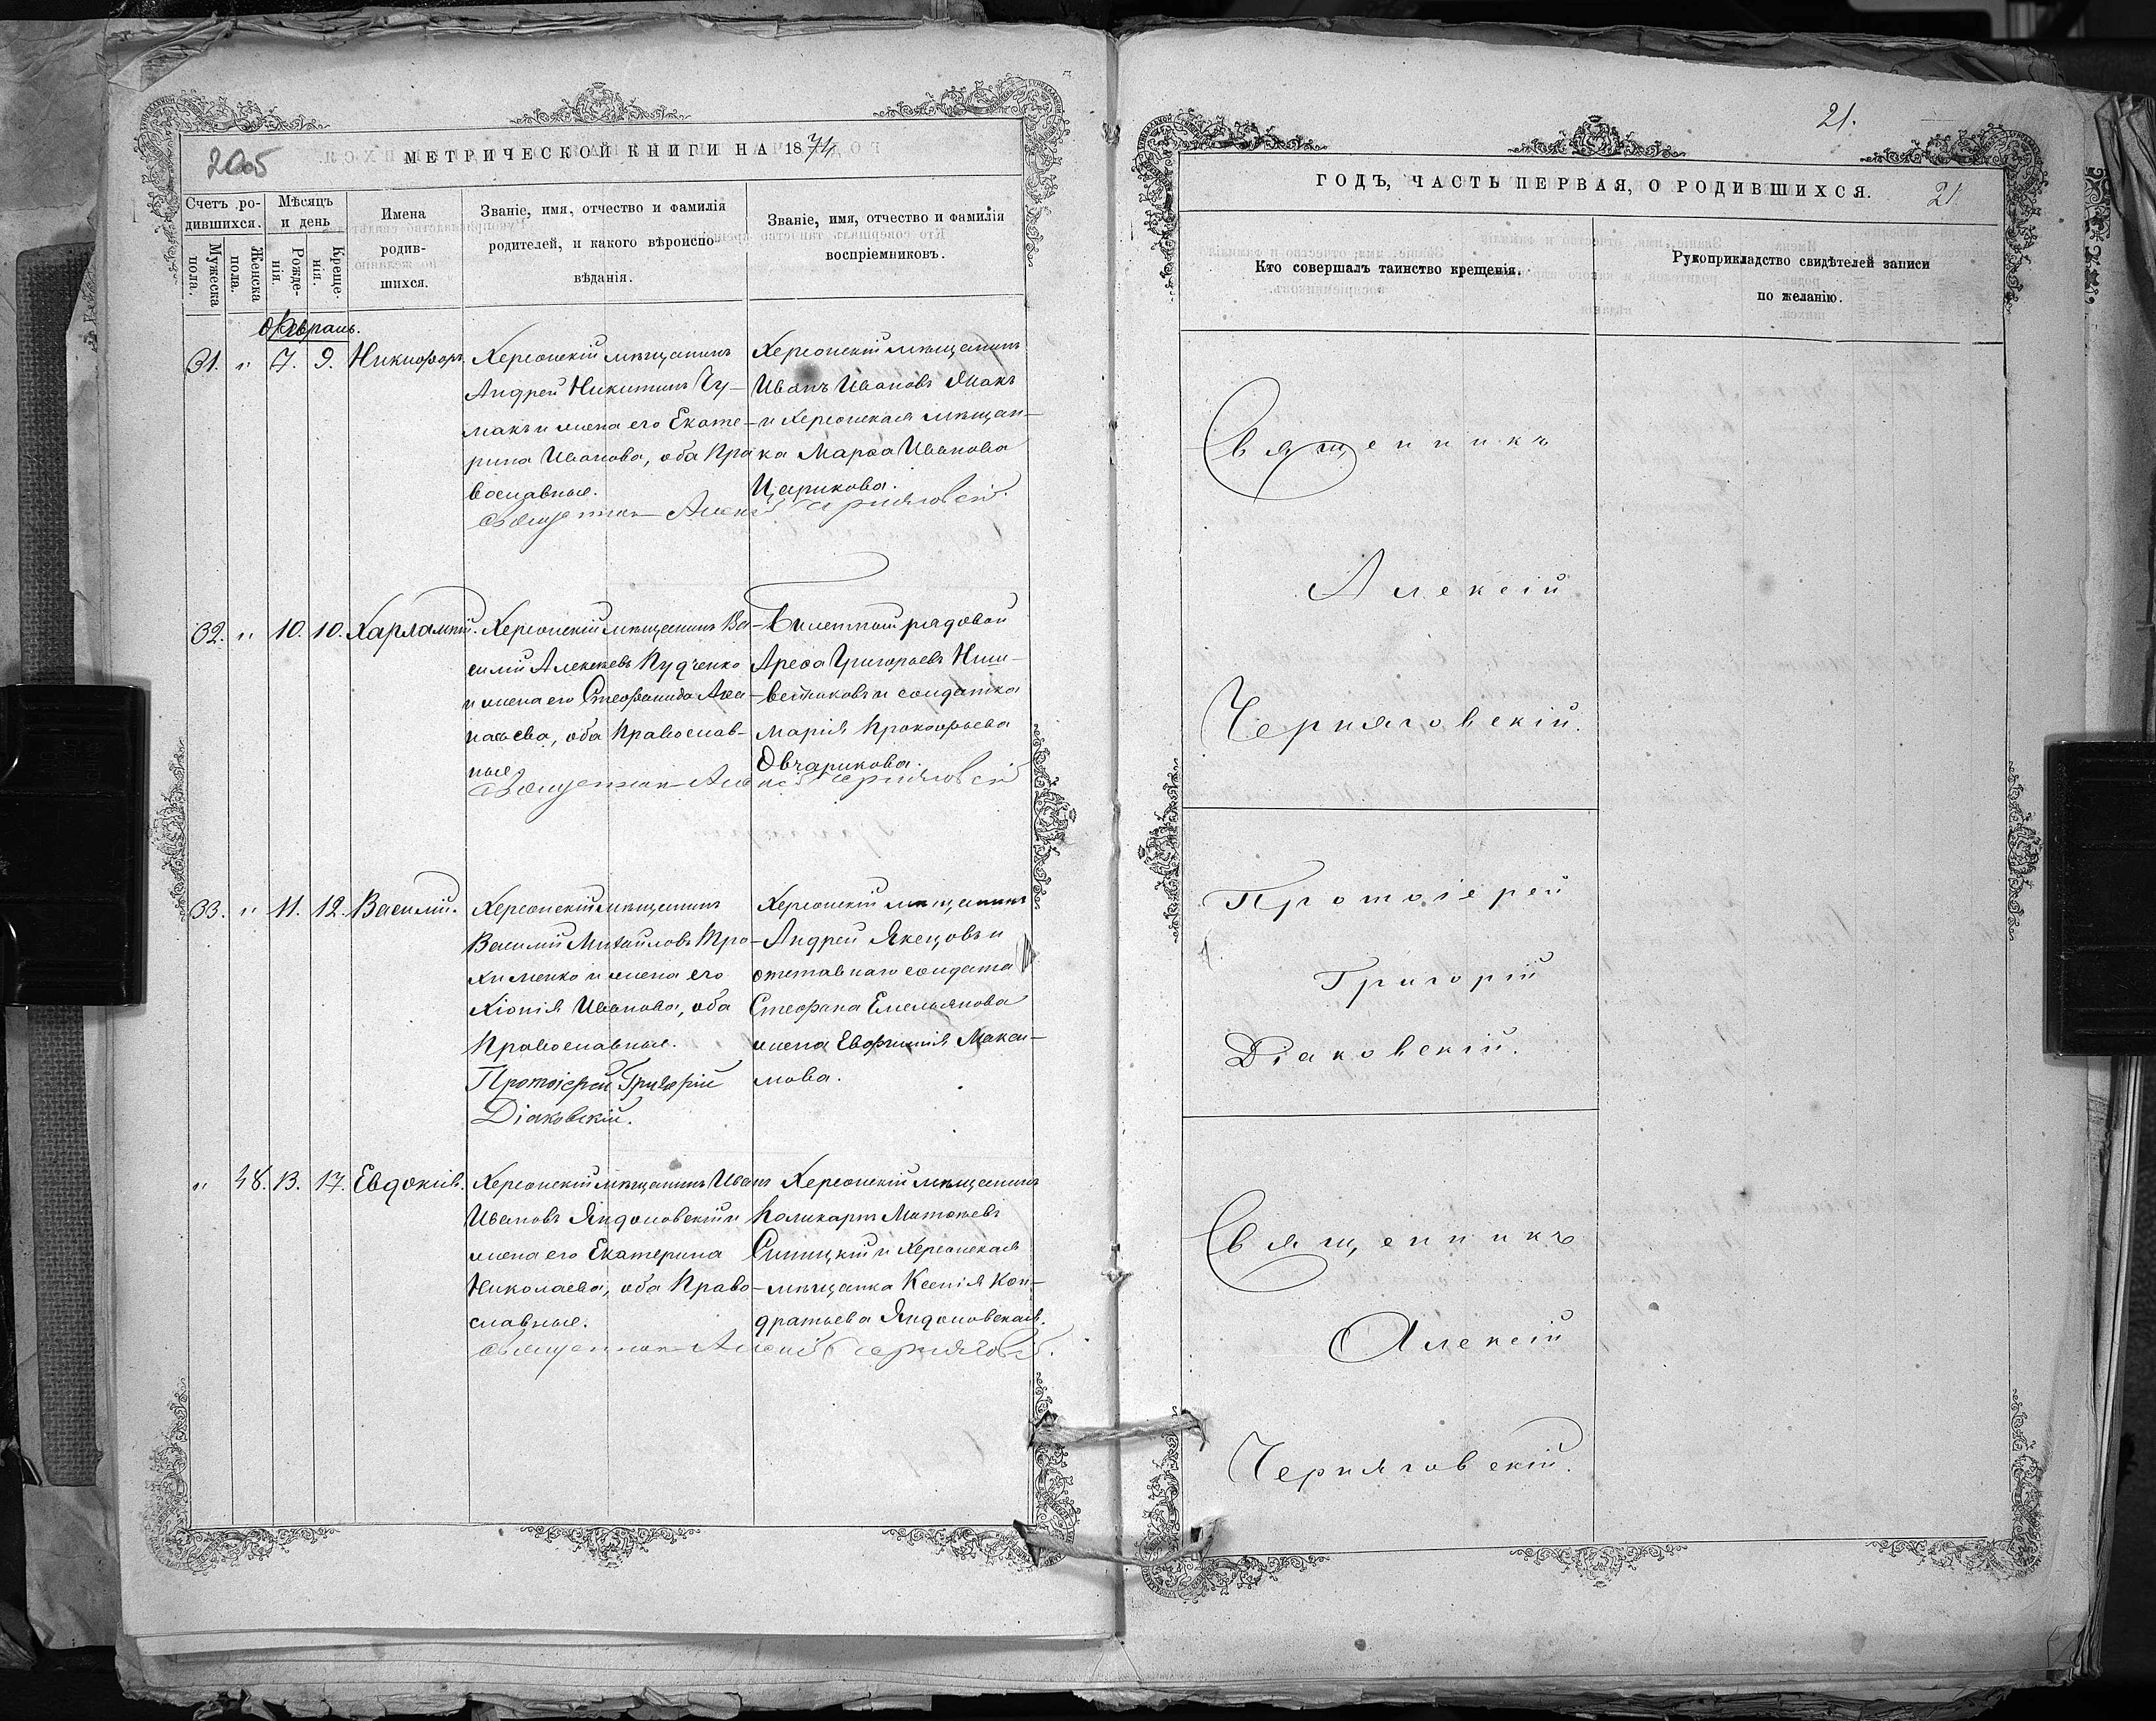 21.
2005
МЕТРИЧЕСКОЙ КНИГИ НА 1874
Счетъ ро-
дившихся.
Мужеска
пола.
Женска
пола.
Мѣсяцъ
и день
Рожде-
нія.
Креще-
нія.
Имена
родив-
шихся.
Званіе, имя, отчество и фамилія
родителей, и какого вѣроиспо-
вѣданія.
Званіе, имя, отчество и фамилія
воспріемниковъ.
Февраль.
31. " 7. 9. Никифоръ.
Херсонскій мѣщанинъ
Андрей Никитинъ Чу-
макъ и жена его Екате-
рина Иванова, оба Пра
вославные.
Херсонскій мѣщанинъ
Иванъ Ивановъ Макъ
и Херсонская мѣщан-
ка Марѳа Иванова
Царикова.
Священник Алексій Черняговскій.
32. " 10. 10. Харлампій.
Херсонскій мѣщанинъ Ва-
силій Алексѣевъ Пудченко
и жена его Стефанида Аѳа-
насьева, оба Православ-
ные.
Билетный рядовой
Ареѳа Григорьевъ
и солдатка
Марія Прокофьева
Овчарикова.
Священник Алексій Черняговскій
33. " 11. 12. Василій.
Херсонскій мѣщанинъ
Василій Михайловъ Тро-
хименко и жена его
Хіонія Иванова, оба
Православные.
Протоіерей Григорій
Діаковскій.
Херсонскій мѣщанинъ
Андрей Якецовъ и
отставнаго солдата
Стефана Емельянова
жена Евфимія Макси-
мова.
" 48. 13. 17. Евдокія.
Херсонскій мѣщанинъ Иванъ
Ивановъ Яндоловскій и
жена его Екатерина
Николаева, оба Право-
славные.
Херсонскій мѣщанинъ
Поликарпъ Матѳеевъ
Синицкій и Херсонская
мѣщанка Ксенія Кон-
дратьева Яндоловская.
Священник Алексій Черняговскій.
ГОДЪ, ЧАСТЬ ПЕРВАЯ, О РОДИВШИХСЯ.
21
Кто совершалъ таинство крещенія.
Рукоприкладство свидѣтелей записи
по желанію.
Священникъ
Алексій
Черняговскій.
Протоіерей
Григорій
Діаковскій.
Священникъ
Алексій
Черняговскій.